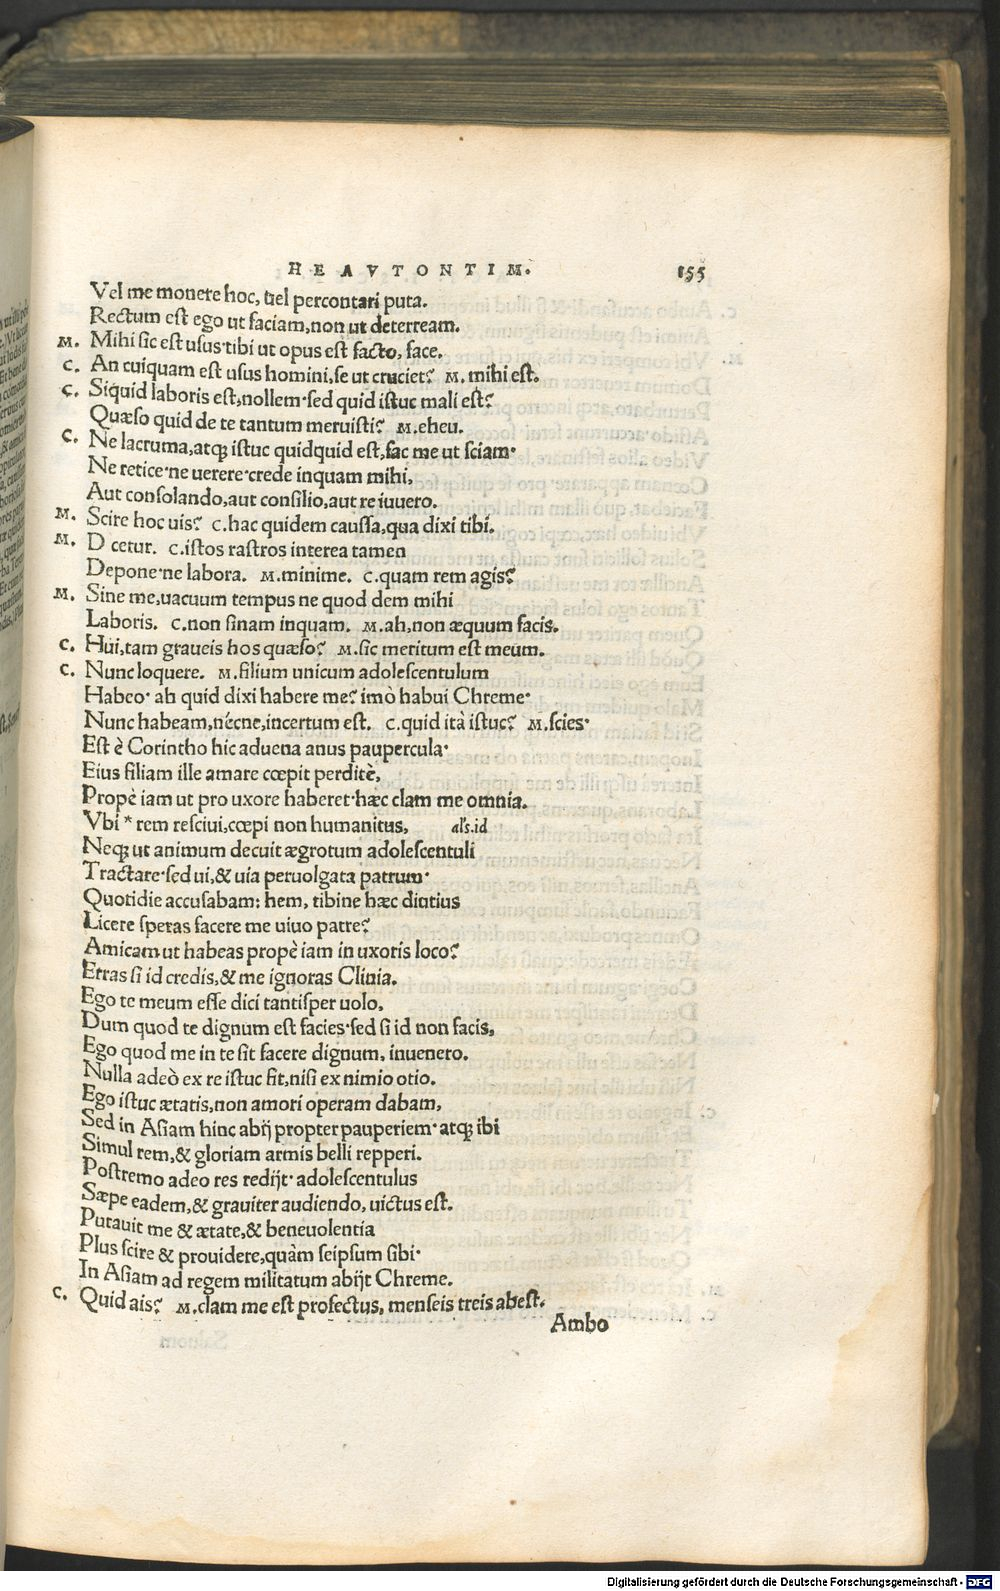 HEAVTONTIM. 155
Vel me monere hoc, uel percontari puta.
Rectum est ego ut faciam, non ut deterream.
M. Mihi sic est usus· tibi ut opus est facto, face.
C. An cuiquam est usus homini, se ut cruciet? M. mihi est.
C. Siquid laboris est, nollem· sed quid istuc mali est?
Quæso quid de te tantum meruisti? M. eheu.
C. Ne lacruma, atq; istuc quidquid est, fac me ut sciam·
Ne retice· ne uerere· crede inquam mihi,
Aut consolando, aut consilio, aut re iuuero.
M. Scire hoc uis? C. hac quidem caussa, qua dixi tibi.
M. D cetur. C. istos rastros interea tamen
Depone· ne labora. M. minime. C. quam rem agis?
M. Sine me, uacuum tempus ne quod dem mihi
Laboris. C. non sinam inquam. M. ah, non æquum facis.
C. Hui, tam graueis hos quæso? M. sic meritum est meum.
C. Nunc loquere. M. filium unicum adolescentulum
Habeo· ah quid dixi habere me? imò habui Chreme·
Nunc habeam, nécne, incertum est. C. quid ità istuc? M. scies·
Est è Corintho hic aduena anus paupercula·
Eius filiam ille amare cœpit perditè,
Propè iam ut pro uxore haberet· hæc clam me omnia.
Vbi * rem resciui, cœpi non humanitus, al's. id
Neq; ut animum decuit ægrotum adolescentuli
Tractare· sed ui, & uia peruolgata patrum·
Quotidie accusabam: hem, tibine hæc diutius
Licere speras facere me uiuo patre?
Amicam ut habeas propè iam in uxoris loco?
Erras si id credis, & me ignoras Clinia.
Ego te meum esse dici tantisper uolo,
Dum quod te dignum est facies· sed si id non facis,
Ego quod me in te sit facere dignum, inuenero.
Nulla adeò ex re istuc fit, nisi ex nimio otio.
Ego istuc ætatis, non amori operam dabam,
Sed in Asiam hinc abij propter pauperiem· atq; ibi
Simul rem, & gloriam armis belli repperi.
Postremo adeo res redijt· adolescentulus
Sæpe eadem, & grauiter audiendo, uictus est.
Putauit me & ætate, & beneuolentia
Plus scire & prouidere, quàm seipsum sibi·
In Asiam ad regem militatum abijt Chreme.
C. Quid ais? M. clam me est profectus, menseis treis abest.
Ambo
Digitalisierung gefördert durch die Deutsche Forschungsgemeinschaft - DFG